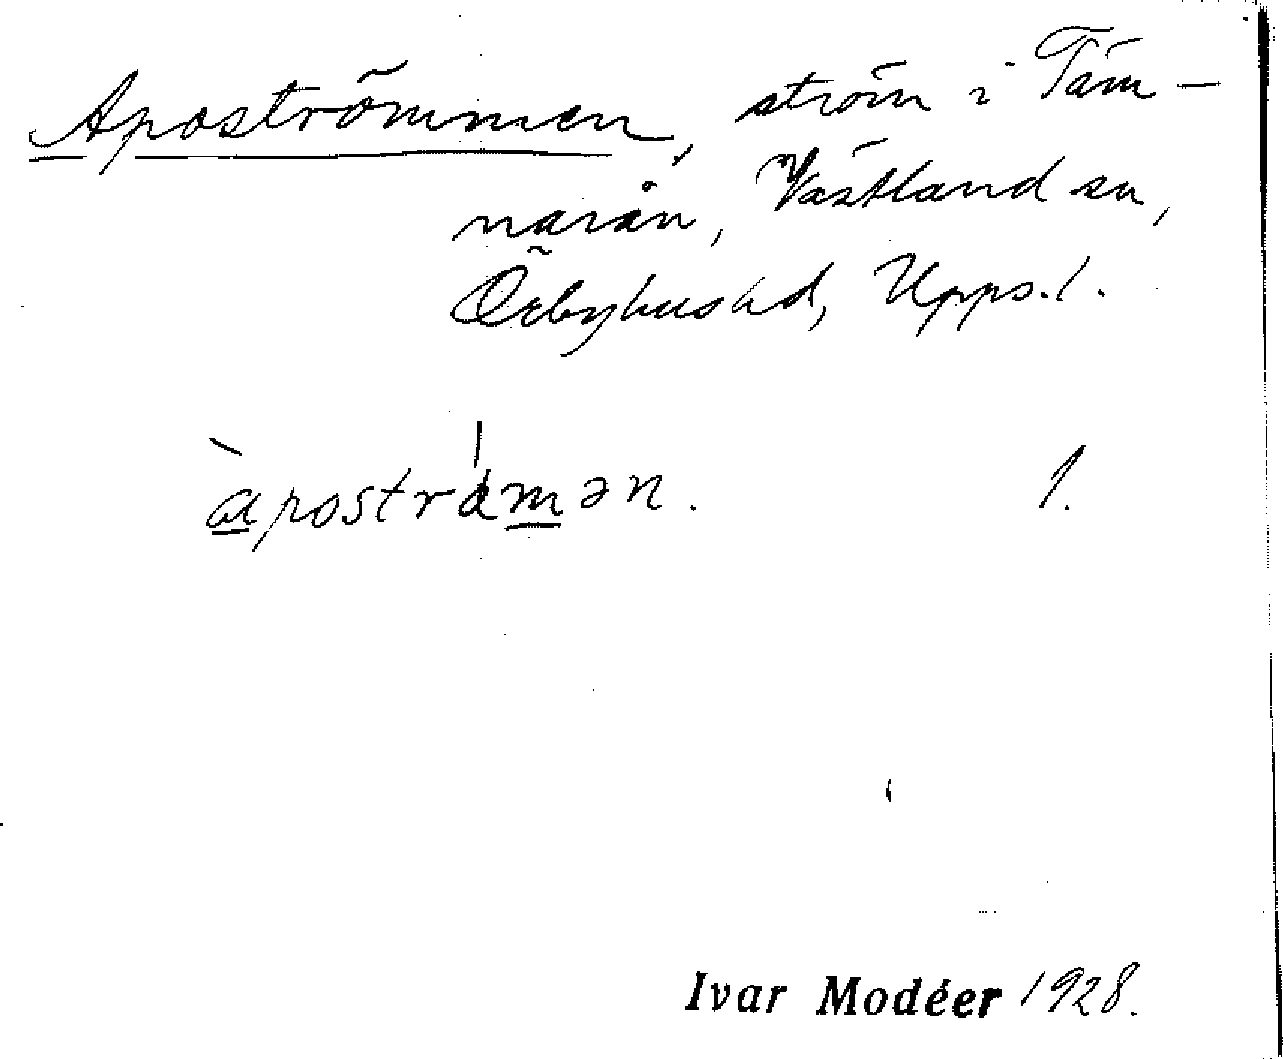 Apoströmmen, ström i Täm-
narån, Västland sn,
Örbyhus hd, Upps. l.
àpostrǻmən. 1.
Ivar Modéer 1928.